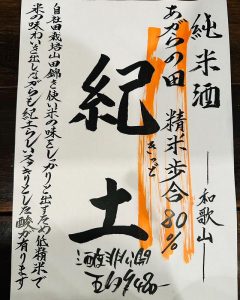 純米酒
――和歌山――
あがらの田 精米歩合80%
紀土
きっど
自社田栽培山田錦を使い米の味をしっかりと出すため低精米で
米の味わいを出しながらも紀土らしいスッキリとした酸が有ります